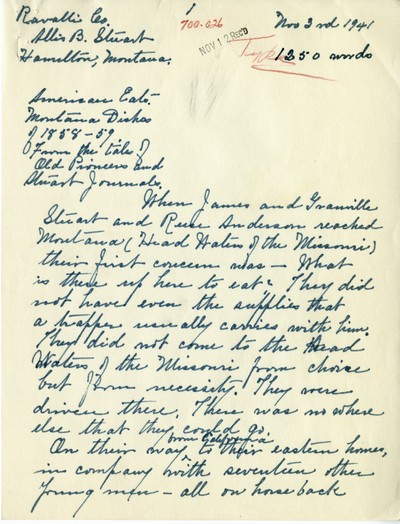 Ravalli Co.
Allis B. Stuart
Hamilton, Montana.
1
700.026
NOV 12 Rec'd
Nov 3rd 1941
Typed
1350 words
American Eats-
Montana Dishes
of 1858-59
(From the tales of
Old Pioneers and
Stuart Journals.
When James and Granville
Stuart and Reese Anderson reached
Montana (Head Waters of the Missouri)
their first concern was - What
is there up here to eat? They did
not have even the supplies that
a trapper usually carries with him.
They did not come to the Head
Waters of the Missouri from choise
but from necessity. They were
driven there. There was no where
else that they could go.
On their way from California to their eastern homes,
in company with seventeen other
young men - all on horseback